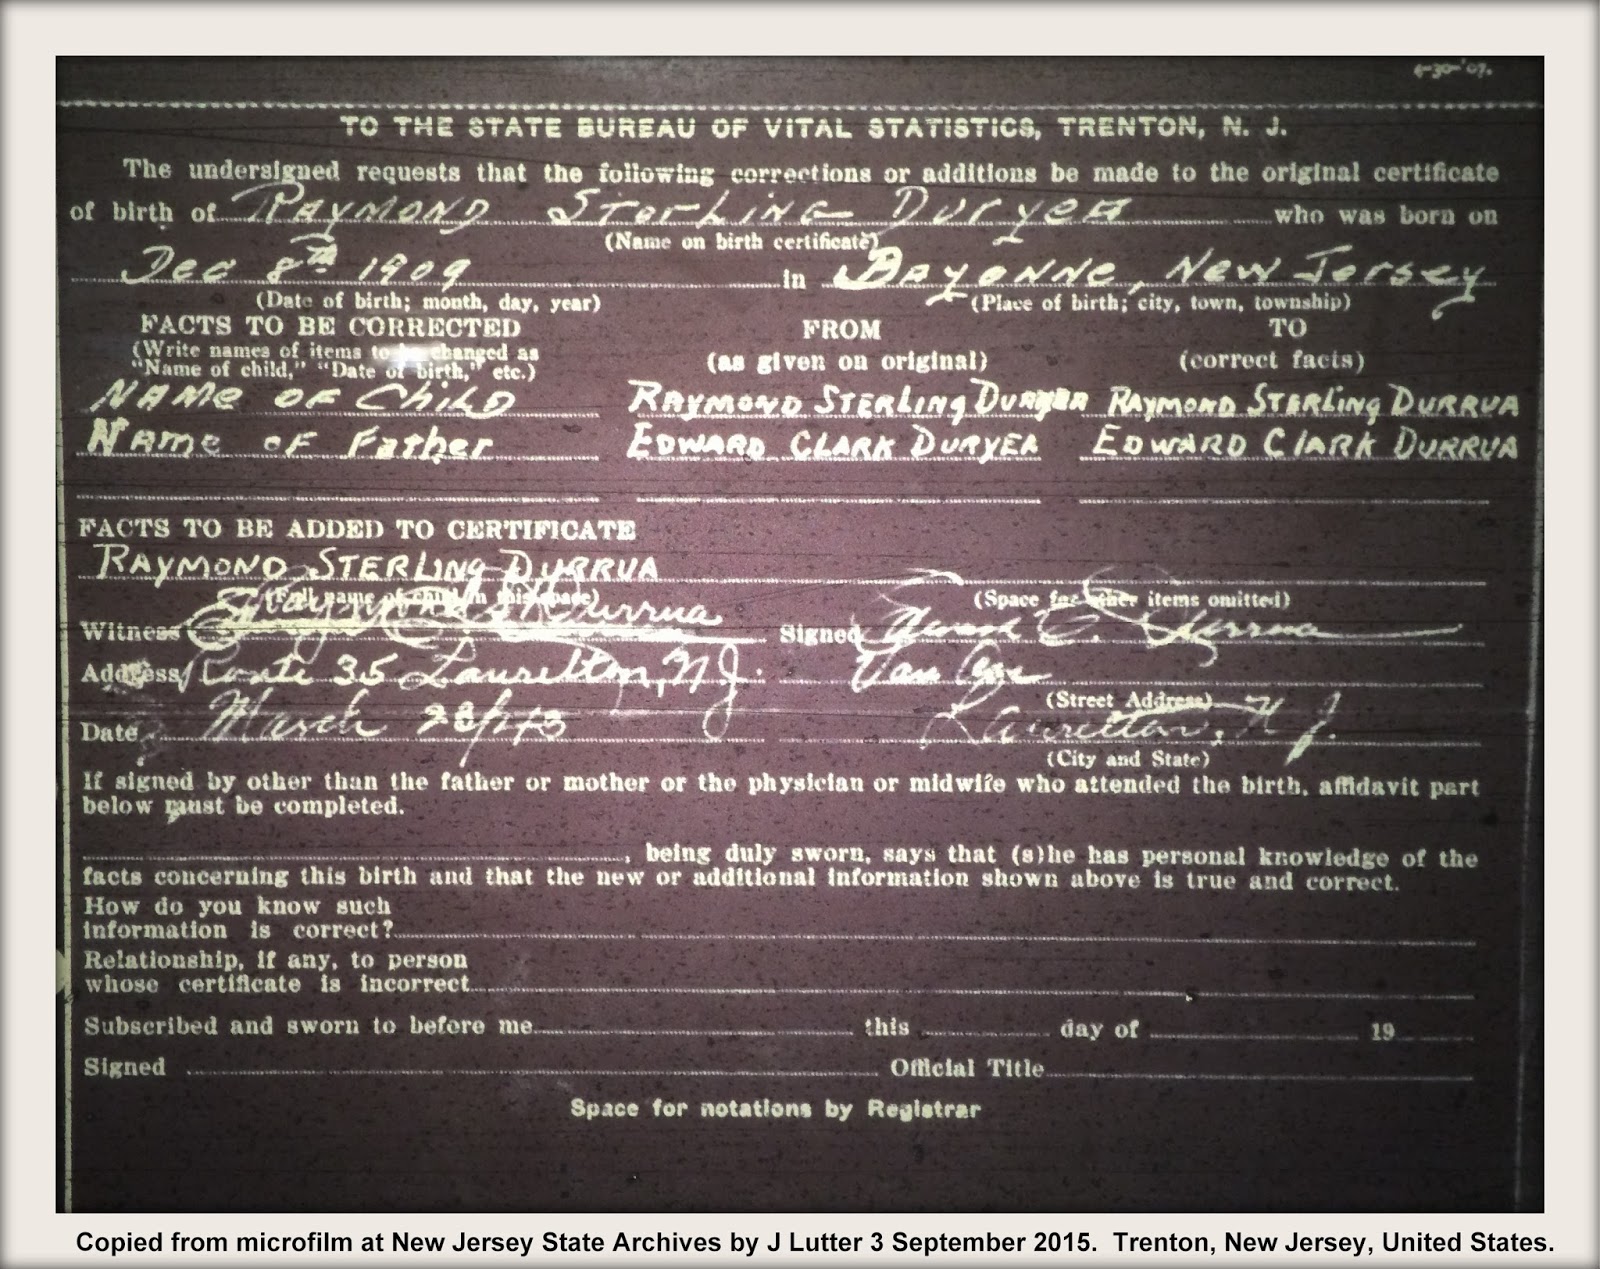 -30-'07.
TO THE STATE BUREAU OF VITAL STATISTICS, TRENTON, N. J.
The undersigned requests that the following corrections or additions be made to the original certificate
of birth of RAYMOND STERLING DURYEA who was born on
(Name on birth certificate)
Dec 8th 1909 in BAYONNE, NEW JERSEY
(Date of birth; month, day, year) (Place of birth; city, town, township)
FACTS TO BE CORRECTED FROM TO
(Write names of items to be changed as (as given on original) (correct facts)
"Name of child," "Date of birth," etc.)
NAME OF CHILD RAYMOND STERLING DURYEA RAYMOND STERLING DURRUA
NAME OF Father EDWARD CLARK DURYEA EDWARD CLARK DURRUA
FACTS TO BE ADDED TO CERTIFICATE
RAYMOND STERLING DURRUA
(Full name of child in this space) (Space for other items omitted)
Witness Raymond S. Durrua Signed C. Durrua
Address Route 35 Laurelton, N.J. Van
(Street Address)
Date March 23/ Laurelton, N.J.
(City and State)
If signed by other than the father or mother or the physician or midwife who attended the birth, affidavit part
below must be completed.
, being duly sworn, says that (s)he has personal knowledge of the
facts concerning this birth and that the new or additional information shown above is true and correct.
How do you know such
information is correct?
Relationship, if any, to person
whose certificate is incorrect
Subscribed and sworn to before me this day of 19
Signed Official Title
Space for notations by Registrar
Copied from microfilm at New Jersey State Archives by J Lutter 3 September 2015. Trenton, New Jersey, United States.